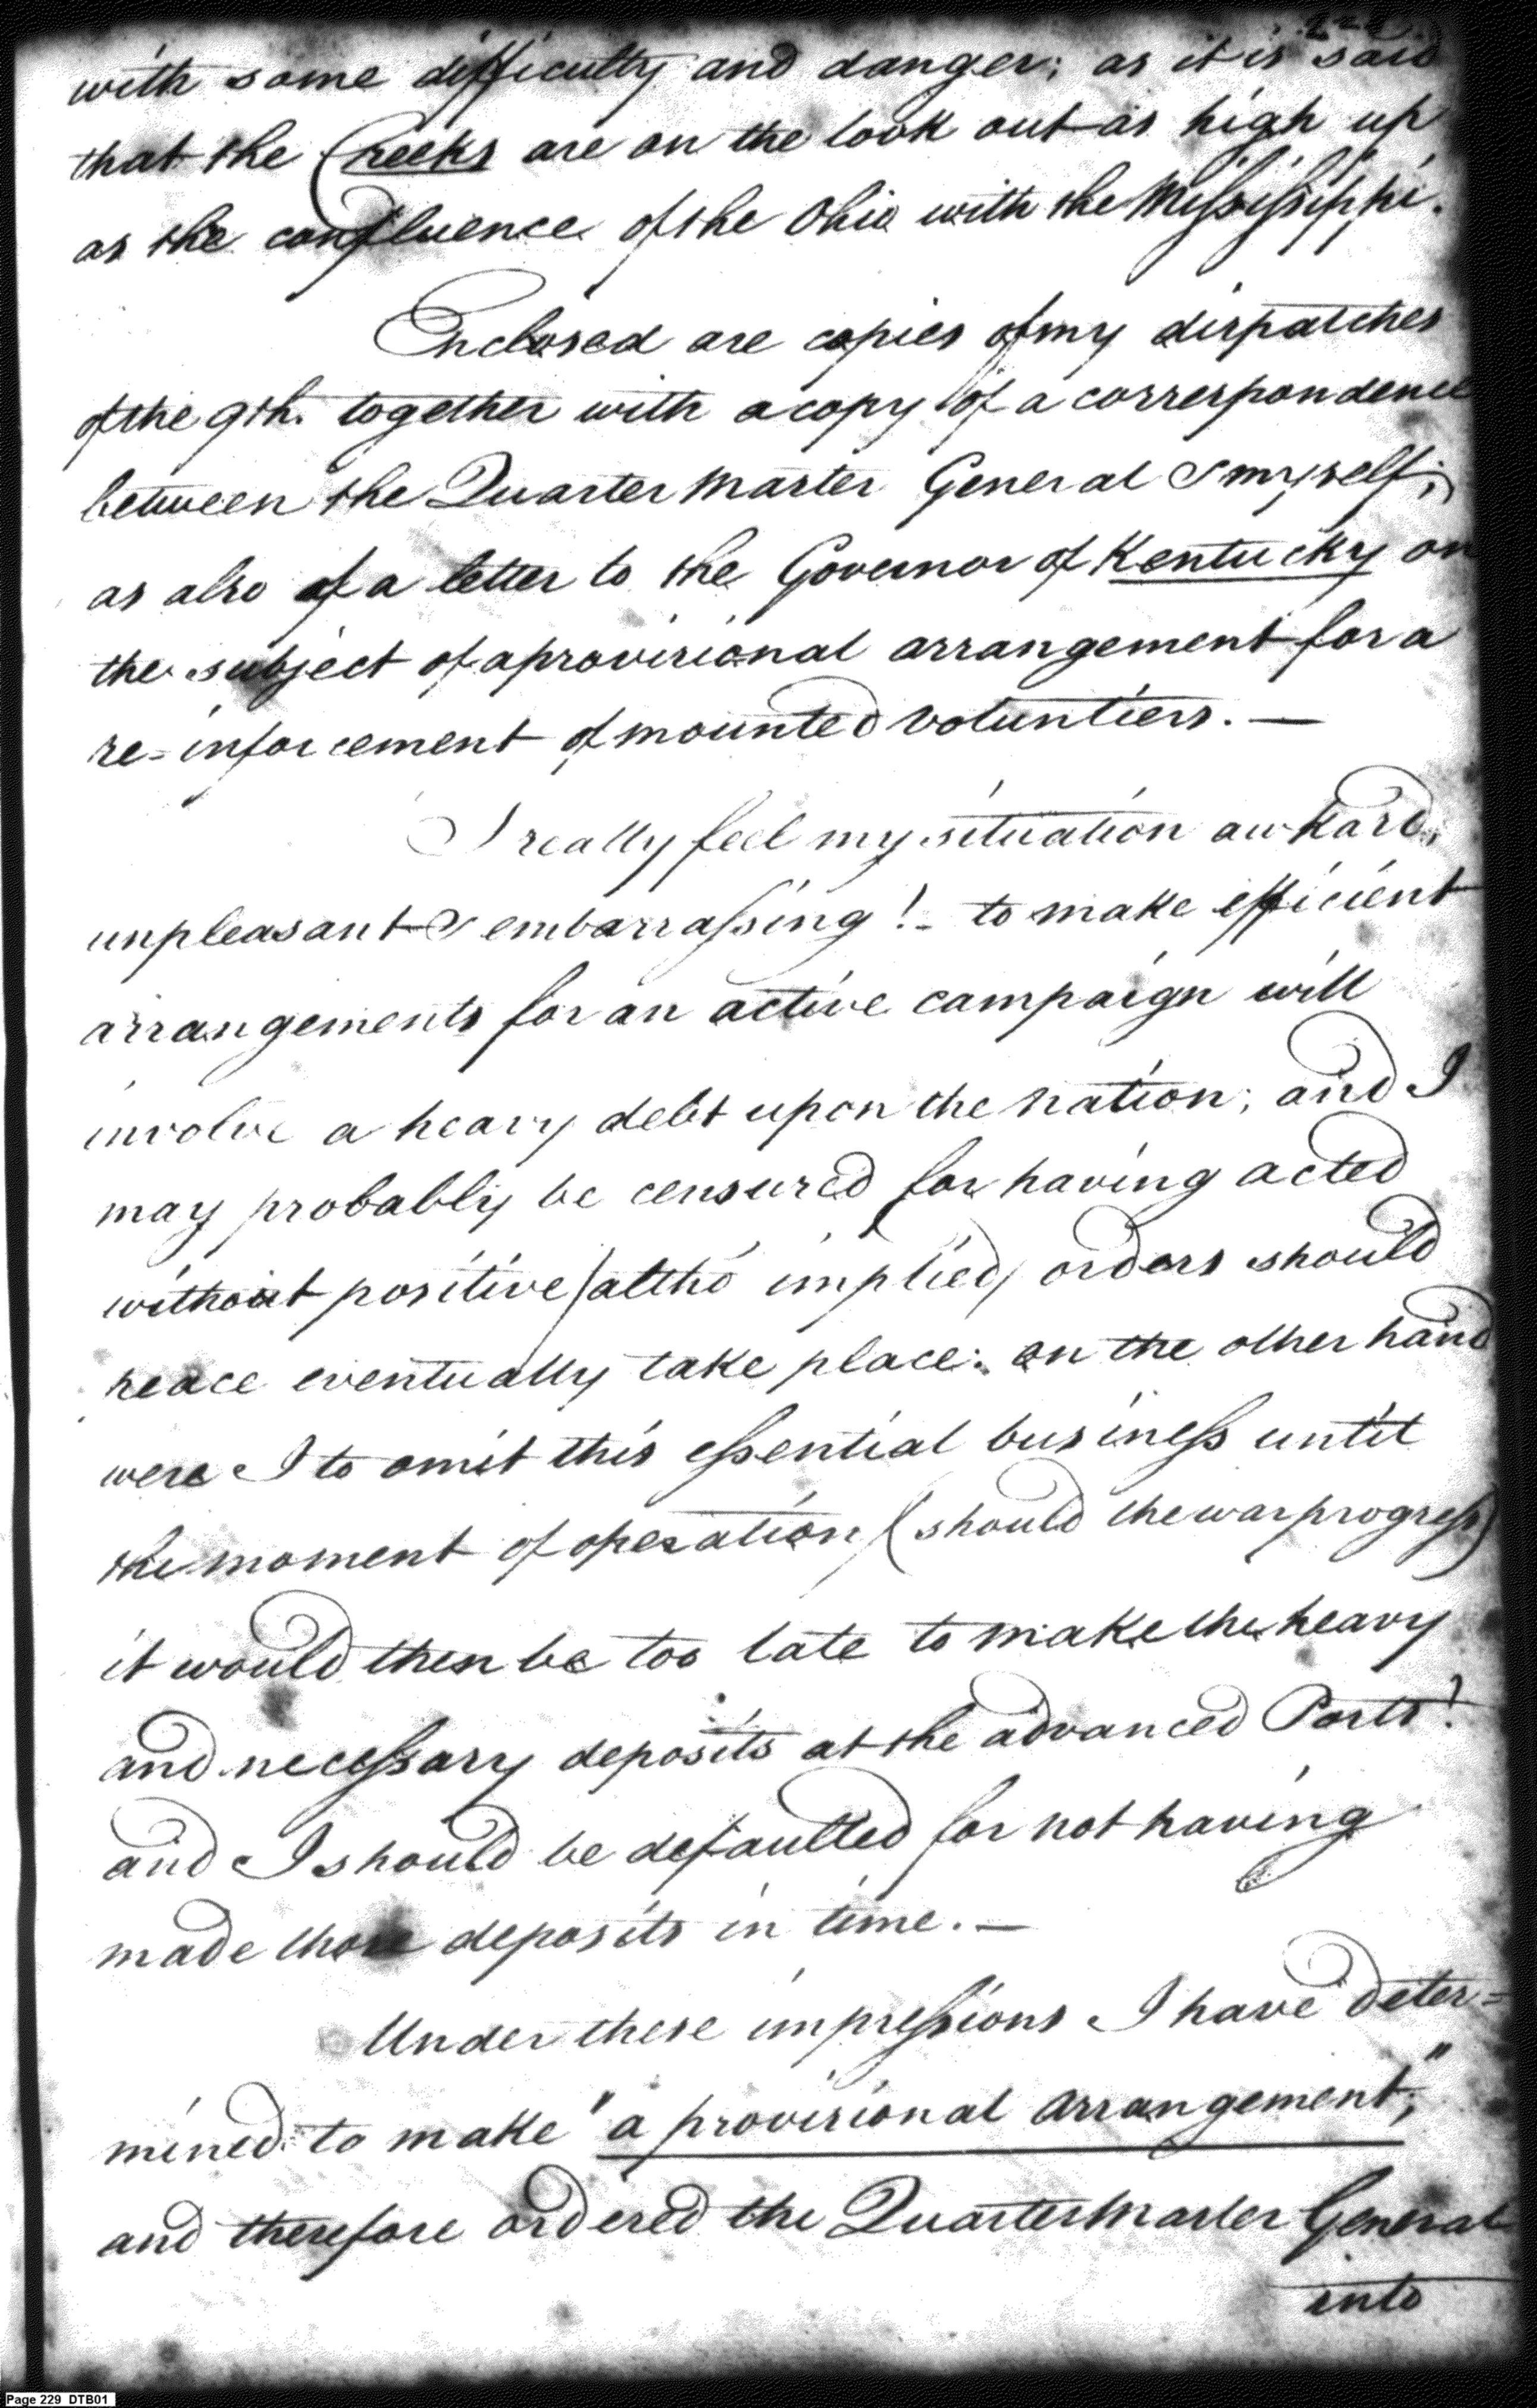 with some difficulty and danger; as it is said
that the Creeks are on the look out as high up
as the confluence of the Ohio with the Mississippi.
Enclosed are copies of my dispatches
of the 9th. together with a copy of a correspondence
between the Quarter Master General & myself;
as also of a letter to the Governor of Kentucky on
the subject of a provisional arrangement for a
re-inforcement of mounted voluntiers. —
I really feel my situation awkard,
unpleasant & embarrassing! - to make efficient
arrangements for an active campaign will
involve a heavy debt upon the nation; and I
may probably be censured for having acted
without positive (altho implied) orders should
peace eventually take place: on the other hand
were I to omit this essential business until
the moment of operation (should the war progress)
it would then be too late to make the heavy
and necessary deposits at the advanced Posts!
and I should be defaulted for not having
made those deposits in time. —
Under these impressions I have deter=
mined to make "a provisional arrangement,"
and therefore ordered the Quarter Master General
into
Page 229 DTB01